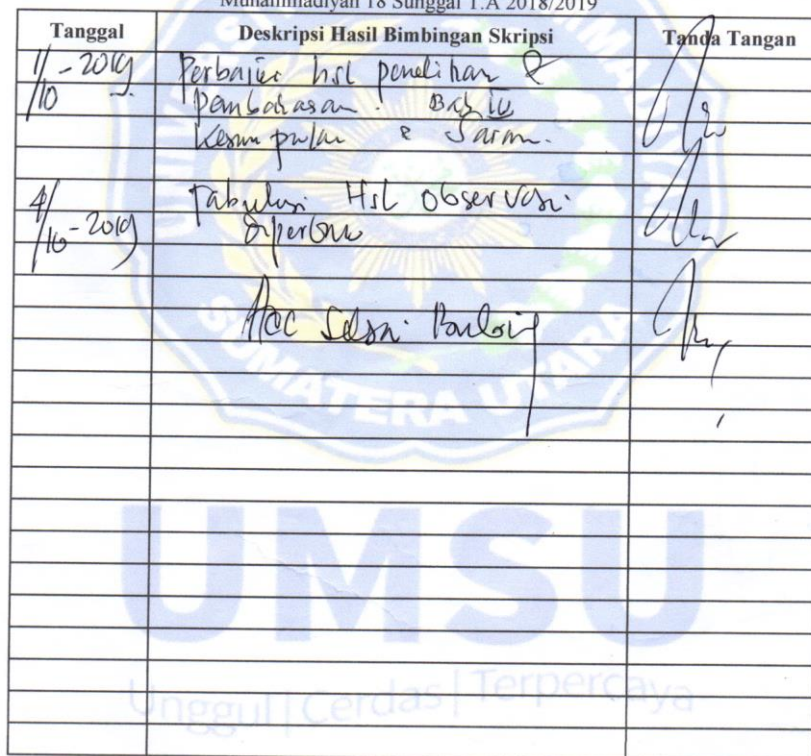 Muhammadiyah 18 Sunggal T.A 2018/2019
Tanggal Deskripsi Hasil Bimbingan Skripsi Tanda Tangan
1/10 - 2019 Perbaiki hsl penelitian &
pembahasan. Bab IV
Kesimpulan & Saran.
4/10 - 2019 Tabulasi Hsl observasi
diperbaiki
Acc
SUMATERA UTARA
UMSU
Unggul | Cerdas | Terpercaya